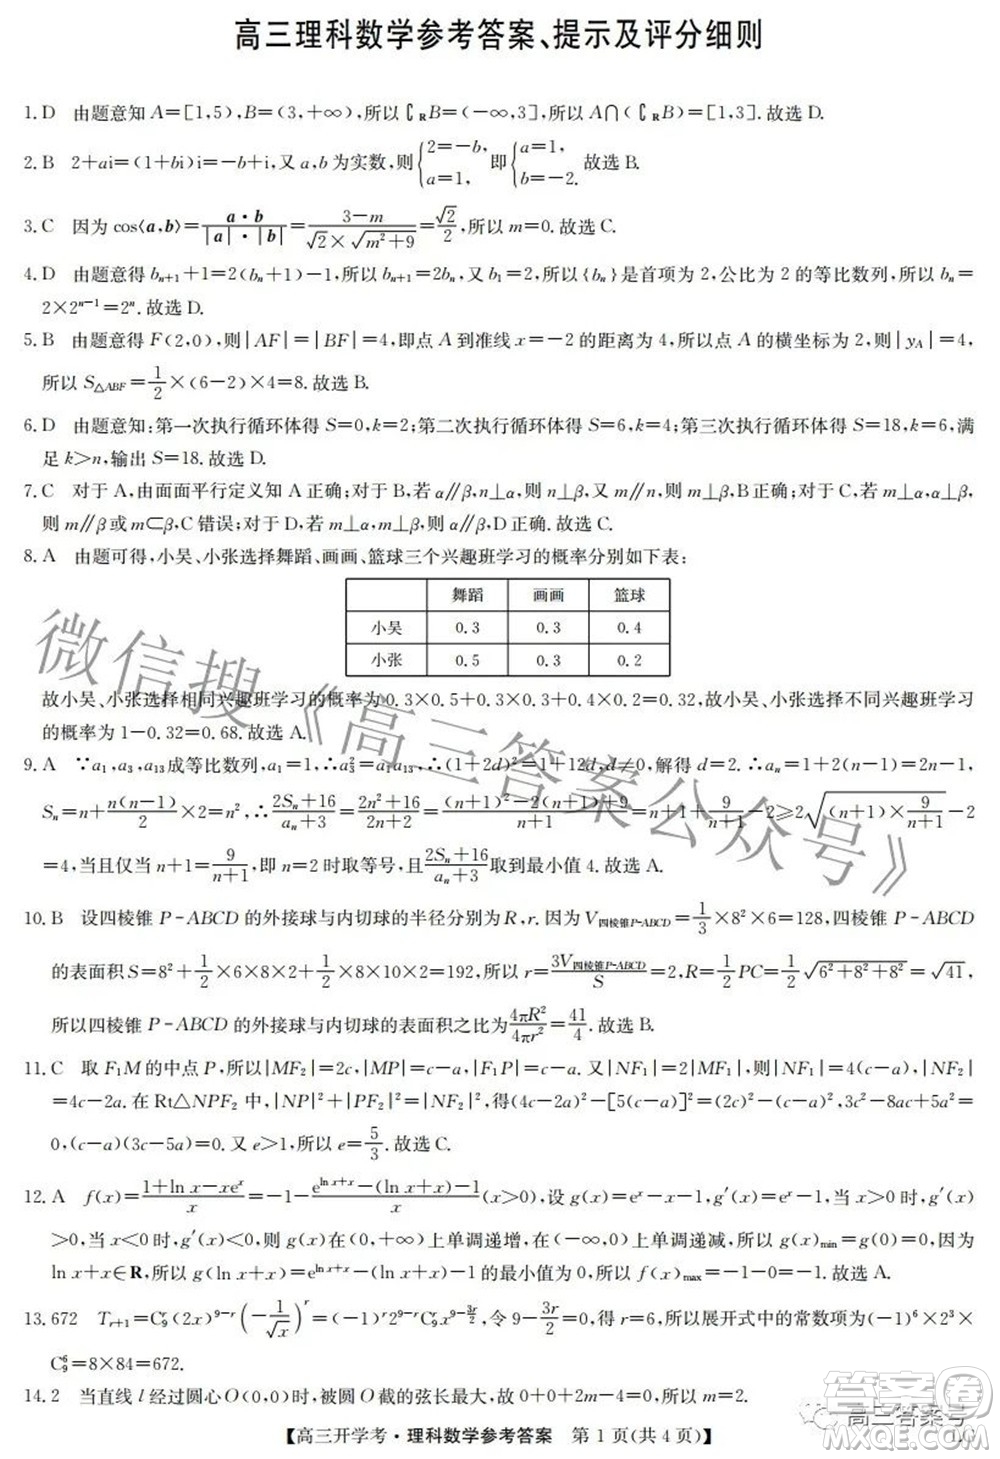 高三理科数学参考答案、提示及评分细则
1.D 由题意知 A=[1,5),B=(3,+∞),所以 ∁RB=(-∞,3],所以 A∩(∁RB)=[1,3].故选 D.
2.B 2+ai=(1+bi)i=-b+i,又 a,b 为实数,则{2=-b, a=1, 即{a=1, b=-2. 故选 B.
3.C 因为 cos⟨a,b⟩=a·b/(|a|·|b|)=(3-m)/(√2×√(m²+9))=√2/2,所以 m=0.故选 C.
4.D 由题意得 bₙ₊₁+1=2(bₙ+1)-1,所以 bₙ₊₁=2bₙ,又 b₁=2,所以{bₙ}是首项为 2,公比为 2 的等比数列,所以 bₙ=
2×2ⁿ⁻¹=2ⁿ.故选 D.
5.B 由题意得 F(2,0),则|AF|=|BF|=4,即点 A 到准线 x=-2 的距离为 4,所以点 A 的横坐标为 2,则|y_A|=4,
所以 S△ABF=1/2×(6-2)×4=8.故选 B.
6.D 由题意知:第一次执行循环体得 S=0,k=2;第二次执行循环体得 S=6,k=4;第三次执行循环体得 S=18,k=6,满
足 k>n,输出 S=18.故选 D.
7.C 对于 A,由面面平行定义知 A 正确;对于 B,若 α∥β,n⊥α,则 n⊥β,又 m∥n,所以 m⊥β,B 正确;对于 C,若 m⊥α,α⊥β,
则 m∥β 或 m⊂β,C 错误;对于 D,若 m⊥α,m⊥β,则 α∥β,D 正确.故选 C.
8.A 由题可得,小吴、小张选择舞蹈、画画、篮球三个兴趣班学习的概率分别如下表:
舞蹈 画画 篮球
小吴 0.3 0.3 0.4
小张 0.5 0.3 0.2
故小吴、小张选择相同兴趣班学习的概率为 0.3×0.5+0.3×0.3+0.4×0.2=0.32,故小吴、小张选择不同兴趣班学习
的概率为 1-0.32=0.68.故选 A.
9.A ∵a₁,a₃,a₁₃成等比数列,a₁=1,∴a₃²=a₁a₁₃,∴(1+2d)²=1+12d,d≠0,解得 d=2.∴aₙ=1+2(n-1)=2n-1,
Sₙ=n+n(n-1)/2×2=n²,∴(2Sₙ+16)/(aₙ+3)=(2n²+16)/(2n+2)=((n+1)²-2(n+1)+9)/(n+1)=n+1+9/(n+1)-2≥2√((n+1)×9/(n+1))-2
=4,当且仅当 n+1=9/(n+1),即 n=2 时取等号,且(2Sₙ+16)/(aₙ+3)取到最小值 4.故选 A.
10.B 设四棱锥 P-ABCD 的外接球与内切球的半径分别为 R,r.因为 V四棱锥P-ABCD=1/3×8²×6=128,四棱锥 P-ABCD
的表面积 S=8²+1/2×6×8×2+1/2×8×10×2=192,所以 r=3V四棱锥P-ABCD/S=2,R=1/2PC=1/2√(6²+8²+8²)=√41,
所以四棱锥 P-ABCD 的外接球与内切球的表面积之比为 4πR²/4πr²=41/4.故选 B.
11.C 取 F₁M 的中点 P,所以|MF₂|=2c,|MP|=c-a,|F₁P|=c-a.又|NF₁|=2|MF₁|,所以|NF₁|=4(c-a),|NF₂|
=4c-2a.在 Rt△NPF₂ 中,|NP|²+|PF₂|²=|NF₂|²,得(4c-2a)²-[5(c-a)]²=(2c)²-(c-a)²,3c²-8ac+5a²=
0,(c-a)(3c-5a)=0.又 e>1,所以 e=5/3.故选 C.
12.A f(x)=(1+ln x-xeˣ)/x=-1-(e^(ln x+x)-(ln x+x)-1)/x(x>0),设 g(x)=eˣ-x-1,g′(x)=eˣ-1,当 x>0 时,g′(x)
>0,当 x<0 时,g′(x)<0,则 g(x)在(0,+∞)上单调递增,在(-∞,0)上单调递减,所以 g(x)min=g(0)=0,因为
ln x+x∈R,所以 g(ln x+x)=e^(ln x+x)-(ln x+x)-1 的最小值为 0,所以 f(x)max=-1-0=-1.故选 A.
13.672 Tᵣ₊₁=C₉ʳ(2x)⁹⁻ʳ(-1/√x)ʳ=(-1)ʳ2⁹⁻ʳC₉ʳx^(9-3r/2),令 9-3r/2=0,得 r=6,所以展开式中的常数项为(-1)⁶×2³×
C₉⁶=8×84=672.
14.2 当直线 l 经过圆心 O(0,0)时,被圆 O 截的弦长最大,故 0+0+2m-4=0,所以 m=2.
【高三开学考·理科数学参考答案 第 1 页(共 4 页)】
LG
微信搜《高三答案公众号》
高三答案号
答案圈
MXQE.COM